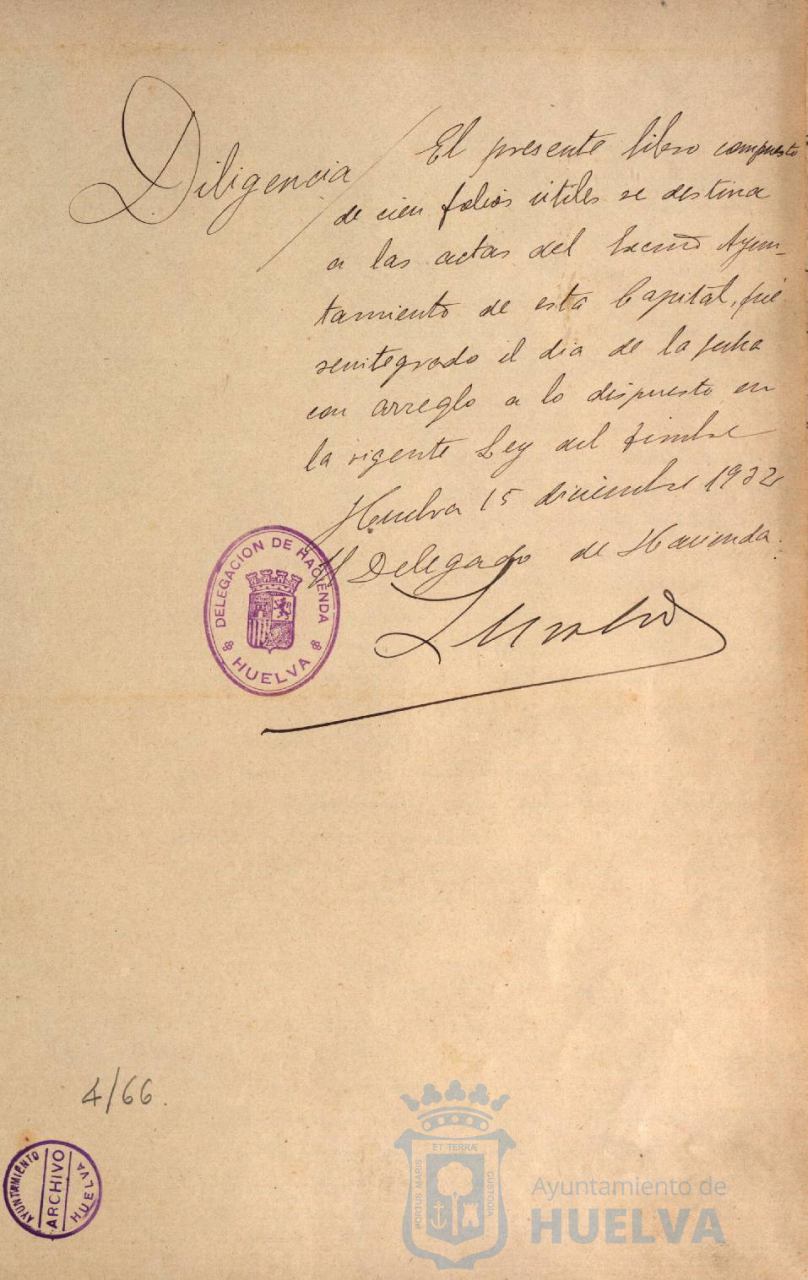 Diligencia / El presente libro compuesto
de cien folios útiles se destina
a las actas del Excmo Ayun-
tamiento de esta Capital, fué
reintegrado el dia de la fecha
con arreglo a lo dispuesto en
la vigente Ley del timbre
Huelva 15 diciembre 1932
El Delegado de Hacienda.
DELEGACION DE HACIENDA
HUELVA
4/66.
AYUNTAMIENTO
ARCHIVO
HUELVA
ET TERRÆ
PORTUS MARIS
CUSTODIA
Ayuntamiento de
HUELVA